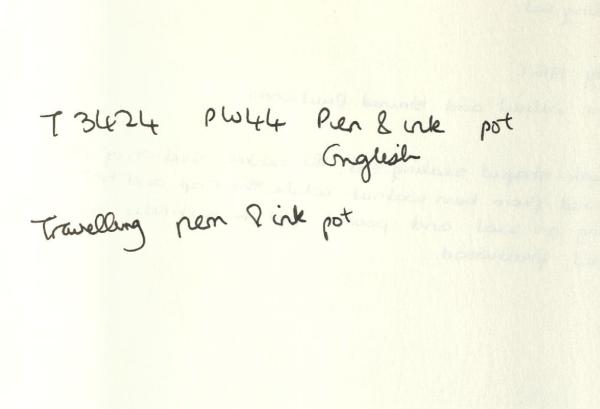 T 3424 PW44 Pen & ink pot
English
Travelling pen & ink pot